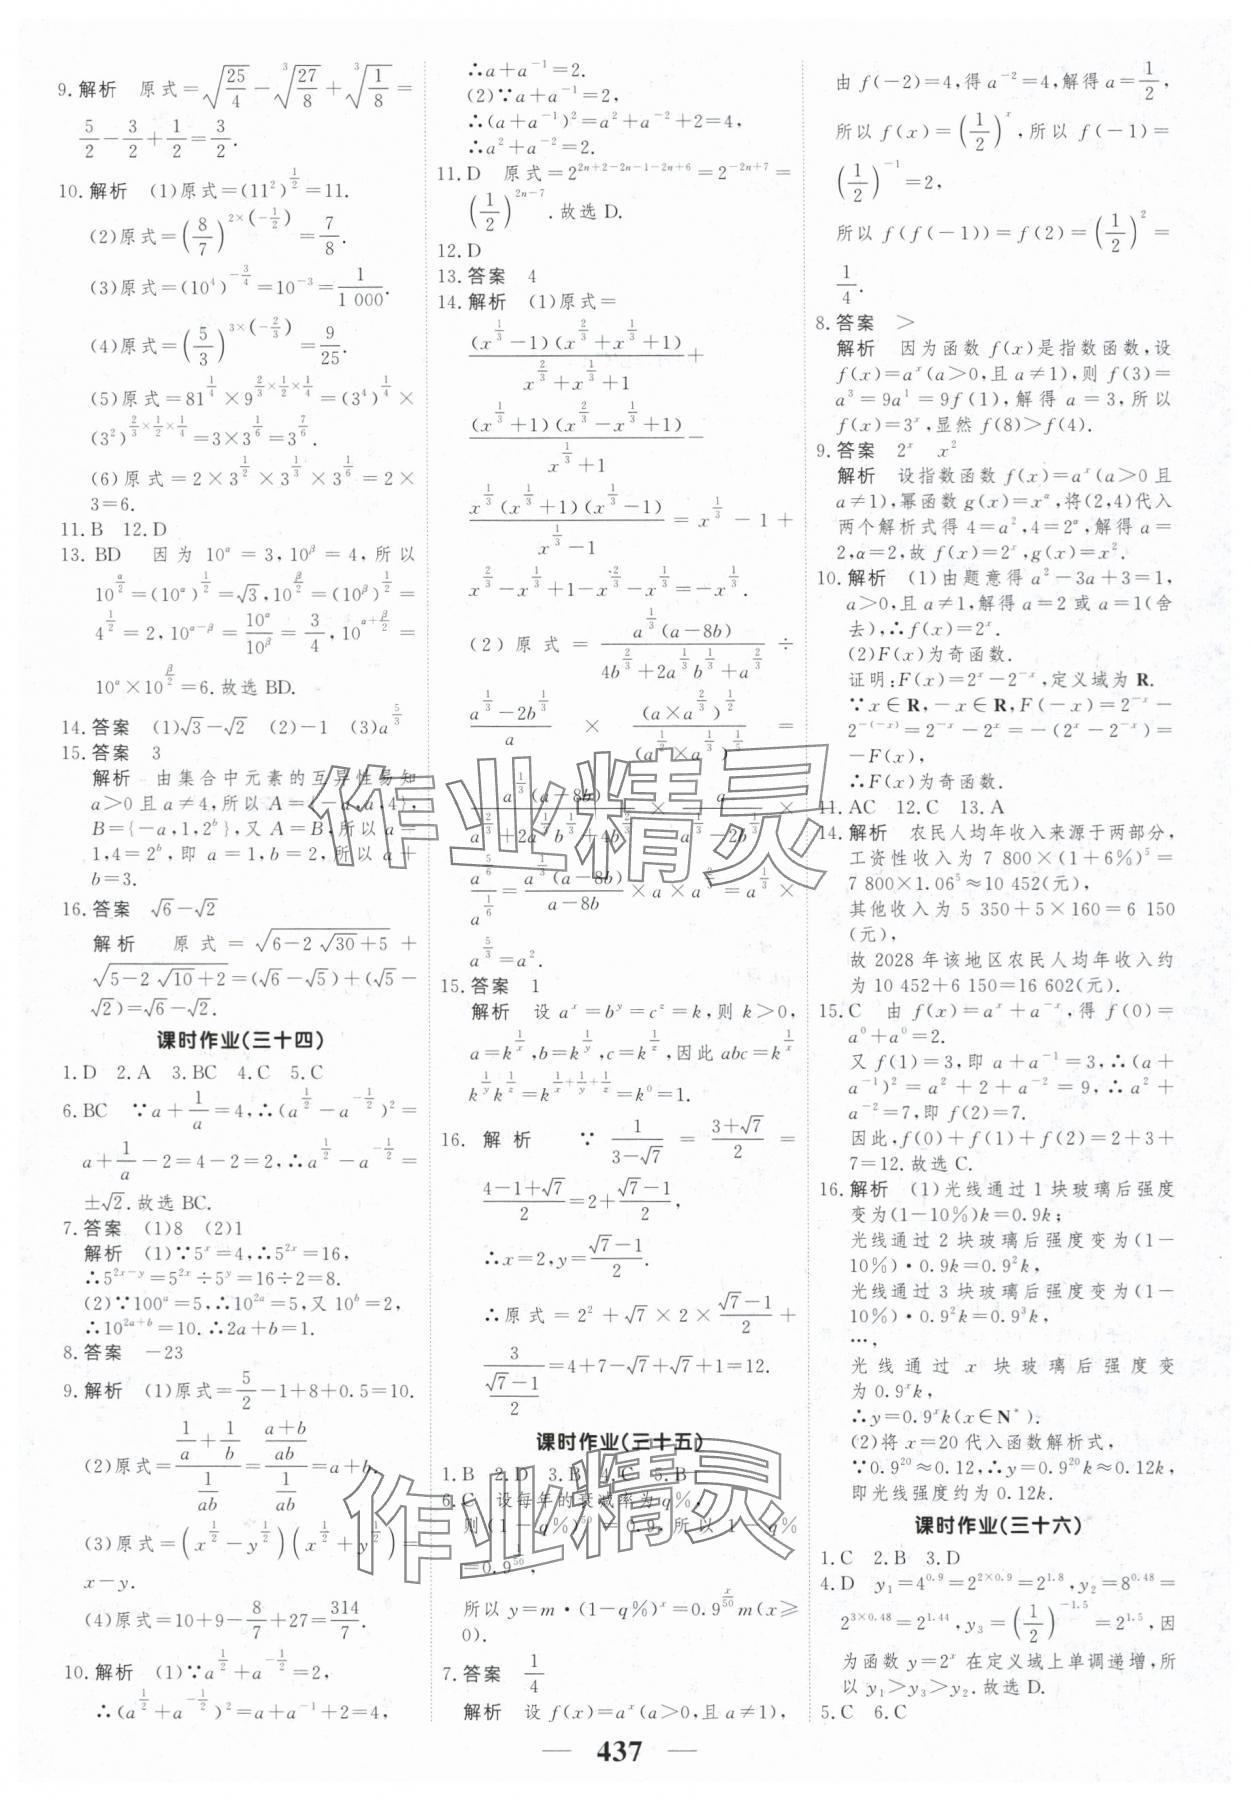 9.解析 原式=√(25/4)-∛(27/8)+∛(1/8)=
5/2-3/2+1/2=3/2.
10.解析 (1)原式=(11²)^(1/2)=11.
(2)原式=(8/7)^(2×(-1/2))=7/8.
(3)原式=(10⁴)^(-3/4)=10⁻³=1/1 000.
(4)原式=(5/3)^(3×(-2/3))=9/25.
(5)原式=81^(1/4)×9^(2/3×1/2×1/4)=(3⁴)^(1/4)×
(3²)^(2/3×1/2×1/4)=3×3^(1/6)=3^(7/6).
(6)原式=2×3^(1/2)×3^(1/3)×3^(1/6)=2×
3=6.
11.B 12.D
13.BD 因为 10^α=3,10^β=4,所以
10^(α/2)=(10^α)^(1/2)=√3,10^(β/2)=(10^β)^(1/2)=
4^(1/2)=2,10^(α-β)=10^α/10^β=3/4,10^(α+β/2)=
10^α×10^(β/2)=6.故选 BD.
14.答案 (1)√3-√2 (2)-1 (3)a^(5/3)
15.答案 3
解析 由集合中元素的互异性易知
a>0 且 a≠4,所以 A={-a,a,4},
B={-a,1,2^b},又 A=B,所以 a=
1,4=2^b,即 a=1,b=2,所以 a+
b=3.
16.答案 √6-√2
解析 原式=√(6-2√30+5)+
√(5-2√10+2)=(√6-√5)+(√5-
√2)=√6-√2.
课时作业(三十四)
1.D 2.A 3.BC 4.C 5.C
6.BC ∵a+1/a=4,∴(a^(1/2)-a^(-1/2))²=
a+1/a-2=4-2=2,∴a^(1/2)-a^(-1/2)=
±√2.故选 BC.
7.答案 (1)8 (2)1
解析 (1)∵5^x=4,∴5^(2x)=16,
∴5^(2x-y)=5^(2x)÷5^y=16÷2=8.
(2)∵100^a=5,∴10^(2a)=5,又 10^b=2,
∴10^(2a+b)=10.∴2a+b=1.
8.答案 -23
9.解析 (1)原式=5/2-1+8+0.5=10.
(2)原式=(1/a+1/b)/(1/ab)=((a+b)/ab)/(1/ab)=a+b.
(3)原式=(x^(1/2)-y^(1/2))(x^(1/2)+y^(1/2))=
x-y.
(4)原式=10+9-8/7+27=314/7.
10.解析 (1)∵a^(1/2)+a^(-1/2)=2,
∴(a^(1/2)+a^(-1/2))²=a+a⁻¹+2=4,
∴a+a⁻¹=2.
(2)∵a+a⁻¹=2,
∴(a+a⁻¹)²=a²+a⁻²+2=4,
∴a²+a⁻²=2.
11.D 原式=2^(2n+2-2n-1-2n+6)=2^(-2n+7)=
(1/2)^(2n-7).故选 D.
12.D
13.答案 4
14.解析 (1)原式=
(x^(1/3)-1)(x^(2/3)+x^(1/3)+1)/(x^(2/3)+x^(1/3)+1)+
(x^(1/3)+1)(x^(2/3)-x^(1/3)+1)/(x^(1/3)+1)-
x^(1/3)(x^(1/3)+1)(x^(1/3)-1)/(x^(1/3)-1)=x^(1/3)-1+
x^(2/3)-x^(1/3)+1-x^(2/3)-x^(1/3)=-x^(1/3).
(2)原式=a^(1/3)(a-8b)/(4b^(2/3)+2a^(1/3)b^(1/3)+a^(2/3))÷
(a^(1/3)-2b^(1/3))/a×(a×a^(2/3))^(1/2)/(a^(1/2)×a^(1/3))^(1/5)=
a^(1/3)(a-8b)/(a^(2/3)+2a^(1/3)b^(1/3)+4b^(2/3))×a/(a^(1/3)-2b^(1/3))×
a^(5/6)/a^(1/6)=a^(1/3)(a-8b)/(a-8b)×a×a^(2/3)=a^(1/3)×
a^(5/3)=a².
15.答案 1
解析 设 a^x=b^y=c^z=k,则 k>0,
a=k^(1/x),b=k^(1/y),c=k^(1/z),因此 abc=k^(1/x)
k^(1/y)k^(1/z)=k^(1/x+1/y+1/z)=k⁰=1.
16.解析 ∵1/(3-√7)=(3+√7)/2=
(4-1+√7)/2=2+(√7-1)/2,
∴x=2,y=(√7-1)/2.
∴原式=2²+√7×2×(√7-1)/2+
3/((√7-1)/2)=4+7-√7+√7+1=12.
课时作业(三十五)
1.B 2.D 3.B 4.C 5.B
6.C 设每年的衰减率为 q%,
则(1-q%)^50=0.9,所以 1-q%
=0.9^(1/50),
所以 y=m·(1-q%)^x=0.9^(x/50)m(x≥
0).
7.答案 1/4
解析 设 f(x)=a^x(a>0,且 a≠1),
由 f(-2)=4,得 a⁻²=4,解得 a=1/2,
所以 f(x)=(1/2)^x,所以 f(-1)=
(1/2)^(-1)=2,
所以 f(f(-1))=f(2)=(1/2)²=
1/4.
8.答案 >
解析 因为函数 f(x)是指数函数,设
f(x)=a^x(a>0,且 a≠1),则 f(3)=
a³=9a¹=9f(1),解得 a=3,所以
f(x)=3^x,显然 f(8)>f(4).
9.答案 2^x x²
解析 设指数函数 f(x)=a^x(a>0 且
a≠1),幂函数 g(x)=x^α,将(2,4)代入
两个解析式得 4=a²,4=2^α,解得 a=
2,α=2,故 f(x)=2^x,g(x)=x².
10.解析 (1)由题意得 a²-3a+3=1,
a>0,且 a≠1,解得 a=2 或 a=1(舍
去),∴f(x)=2^x.
(2)F(x)为奇函数.
证明:F(x)=2^x-2^(-x),定义域为 R.
∵x∈R,-x∈R,F(-x)=2^(-x)-
2^(-(-x))=2^(-x)-2^x=-(2^x-2^(-x))=
-F(x),
∴F(x)为奇函数.
11.AC 12.C 13.A
14.解析 农民人均年收入来源于两部分,
工资性收入为 7 800×(1+6%)⁵=
7 800×1.06⁵≈10 452(元),
其他收入为 5 350+5×160=6 150
(元),
故 2028 年该地区农民人均年收入约
为 10 452+6 150=16 602(元).
15.C 由 f(x)=a^x+a^(-x),得 f(0)=
a⁰+a⁰=2.
又 f(1)=3,即 a+a⁻¹=3,∴(a+
a⁻¹)²=a²+2+a⁻²=9,∴a²+
a⁻²=7,即 f(2)=7.
因此,f(0)+f(1)+f(2)=2+3+
7=12.故选 C.
16.解析 (1)光线通过 1 块玻璃后强度
变为(1-10%)k=0.9k;
光线通过 2 块玻璃后强度变为(1-
10%)·0.9k=0.9²k;
光线通过 3 块玻璃后强度变为(1-
10%)·0.9²k=0.9³k,
…,
光线通过 x 块玻璃后强度变
为 0.9^x k,
∴y=0.9^x k(x∈N*).
(2)将 x=20 代入函数解析式,
∵0.9²⁰≈0.12,∴y=0.9²⁰k≈0.12k,
即光线强度约为 0.12k.
课时作业(三十六)
1.C 2.B 3.D
4.D y₁=4^0.9=2^(2×0.9)=2^1.8,y₂=8^0.48=
2^(3×0.48)=2^1.44,y₃=(1/2)^(-1.5)=2^1.5,因
为函数 y=2^x 在定义域上单调递增,所
以 y₁>y₃>y₂.故选 D.
5.C 6.C
— 437 —
作业精灵
作业精灵